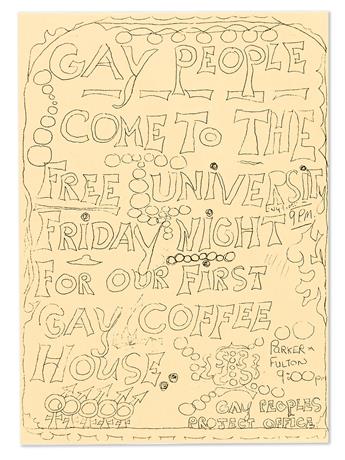 GAY PEOPLE
COME TO THE
FREE UNIVERSITY
9 P.M.
FRIDAY NIGHT
FOR OUR FIRST
GAY COFFEE
HOUSE.
PARKER
FULTON
9:00 pm
GAY PEOPLES
PROJECT OFFICE.